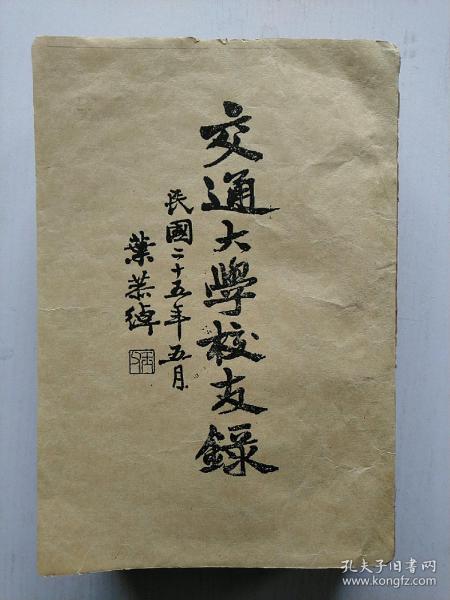 交通大學校友錄
民國二十五年五月
葉恭綽
孔夫子旧书网
www.kongfz.com